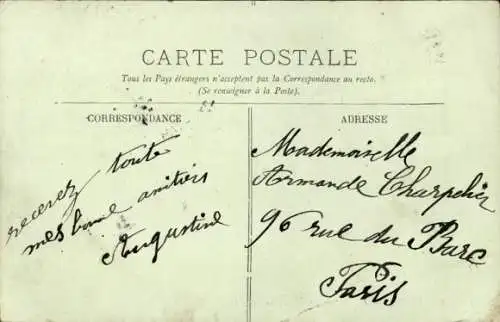 CARTE POSTALE
Tous les Pays étrangers n'acceptent pas la Correspondance au recto.
(Se renseigner à la Poste).
CORRESPONDANCE
recevez toute
mes bonne amitiés
Augustine
ADRESSE
Mademoiselle
Armande Charpelier
96 rue du Barc
Paris